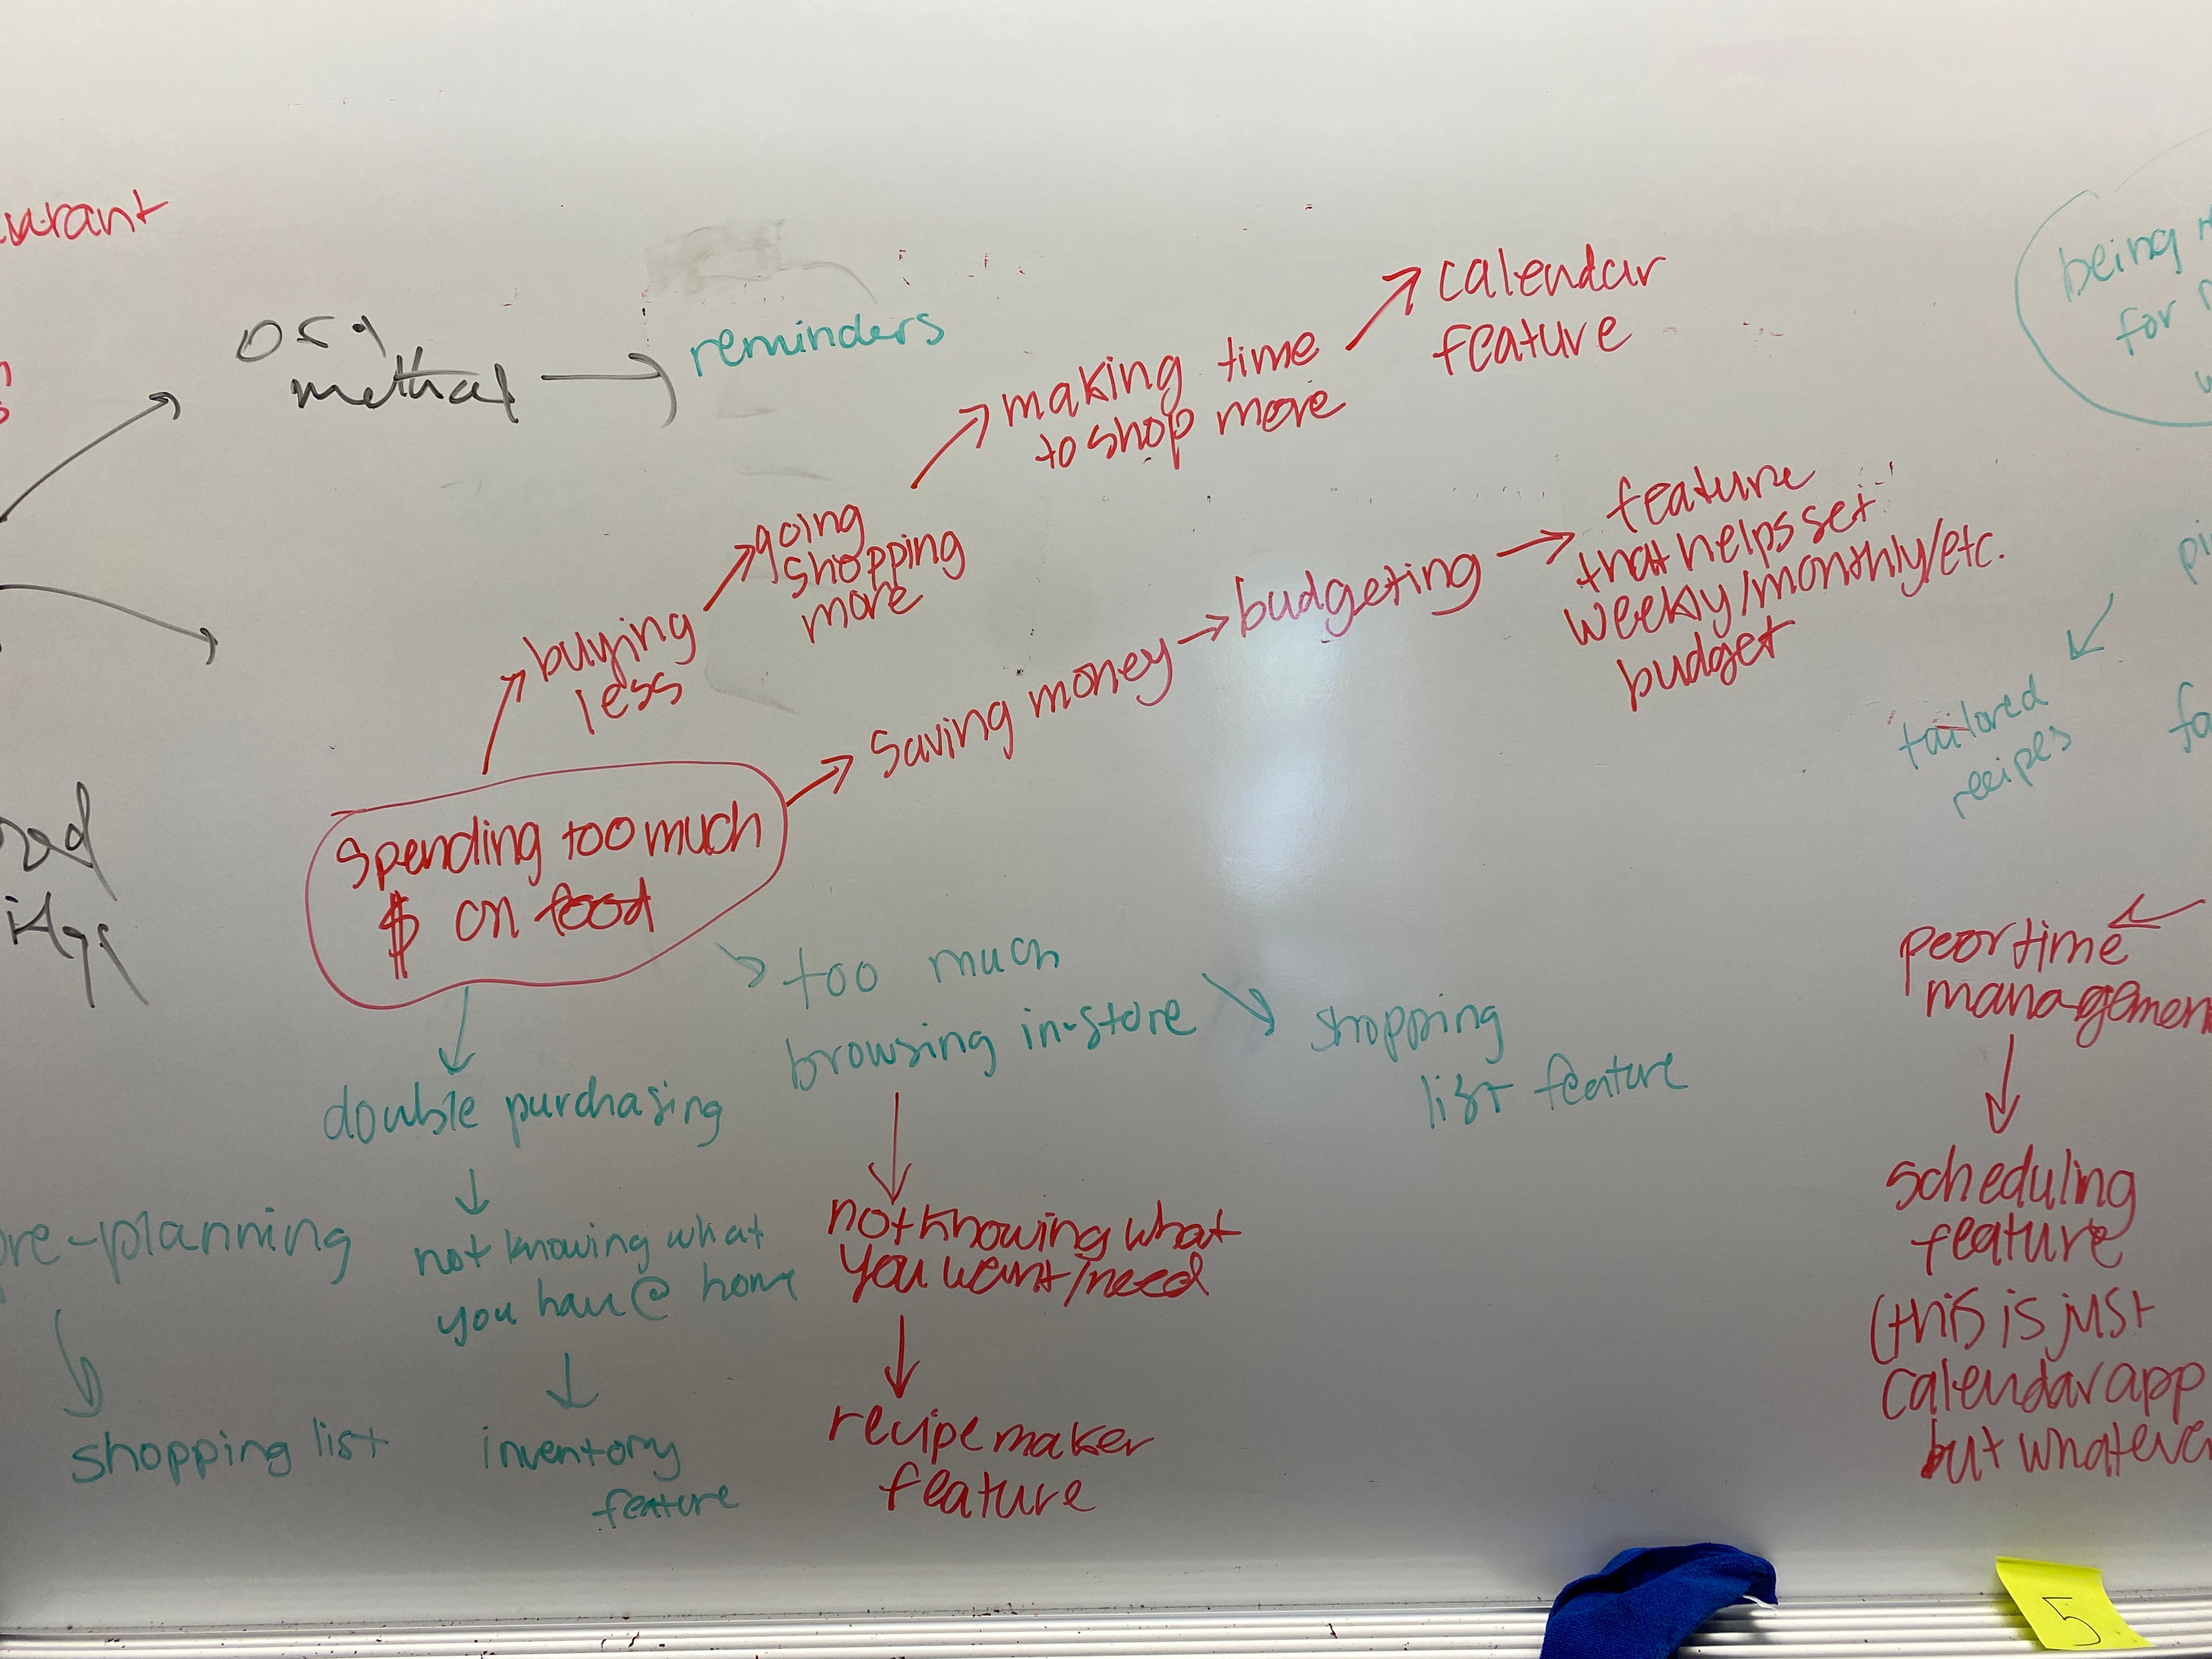 reminders
calendar
feature
making time
to shop more
going
shopping
more
buying
less
feature
that helps set
weekly/monthly/etc.
budget
budgeting
Saving money
Spending too much
$ on food
too much
browsing in-store
shopping
list feature
not knowing what
you want/need
recipe maker
feature
double purchasing
not knowing what
you have @ home
inventory
feature
pre-planning
shopping list
being
for
tailored
recipes
poor time
managemen
scheduling
feature
(this is just
calendar app
but whateve
5